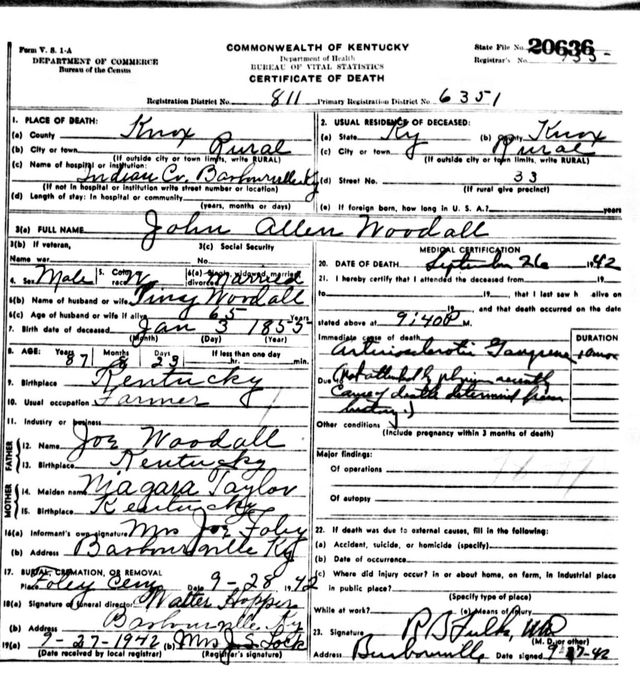 Form V. S. 1-A
DEPARTMENT OF COMMERCE
Bureau of the Census
COMMONWEALTH OF KENTUCKY
Department of Health
BUREAU OF VITAL STATISTICS
CERTIFICATE OF DEATH
State File No. 20636
Registrar's No.
Registration District No. 811 Primary Registration District No. 6351
1. PLACE OF DEATH:
(a) County Knox
(b) City or town Rural
(If outside city or town limits, write RURAL)
(c) Name of hospital or institution:
Indian Cr. Barbourville Ky
(If not in hospital or institution write street number or location)
(d) Length of stay: In hospital or community
(years, months or days)
2. USUAL RESIDENCE OF DECEASED:
(a) State Ky (b) County Knox
(c) City or town Rural
(If outside city or town limits, write RURAL)
(d) Street No. 33
(If rural give precinct)
(e) If foreign born, how long in U. S. A.? years
3(a) FULL NAME John Allen Woodall
3(b) If veteran,
Name war
3(c) Social Security
No.
4. Sex Male 5. Color or race W 6(a) Single, widowed, married, divorced Married
6(b) Name of husband or wife Piney Woodall
6(c) Age of husband or wife if alive 65 Years
7. Birth date of deceased Jan 3 1855
(Month) (Day) (Year)
8. AGE: Years 87 Months 8 Days 23 If less than one day
hr. min.
9. Birthplace Kentucky
10. Usual occupation Farmer
11. Industry or business
FATHER
12. Name Joe Woodall
13. Birthplace Kentucky
MOTHER
14. Maiden name Niagara Taylor
15. Birthplace Kentucky
16(a) Informant's own signature Mrs Joe Foley
(b) Address Barbourville Ky
17. BURIAL, CREMATION, OR REMOVAL
Place Foley Cem Date 9-28 1942
18(a) Signature of funeral director Walter Hopper
(b) Address Barbourville, Ky
19(a) 9-27-1942 (b) Mrs J. S. Lock
(Date received by local registrar) (Registrar's signature)
MEDICAL CERTIFICATION
20. DATE OF DEATH September 26 1942
21. I hereby certify that I attended the deceased from 19
to 19 , that I last saw h alive on
19 , and that death occurred on the date
stated above at 9:40P M.
Immediate cause of death DURATION
Arteriosclerotic Gangrene
Due to (Not attended by physician recently
Cause of death determined from
history.)
Other conditions
(Include pregnancy within 3 months of death)
Major findings:
Of operations
Of autopsy
22. If death was due to external causes, fill in the following:
(a) Accident, suicide, or homicide (specify)
(b) Date of occurrence
(c) Where did injury occur? in or about home, on farm, in industrial place
in public place?
(Specify type of place)
While at work? (e) Means of injury
23. Signature R B Fulks, MD
(M. D. or other)
Address Barbourville Date signed 9-27-42